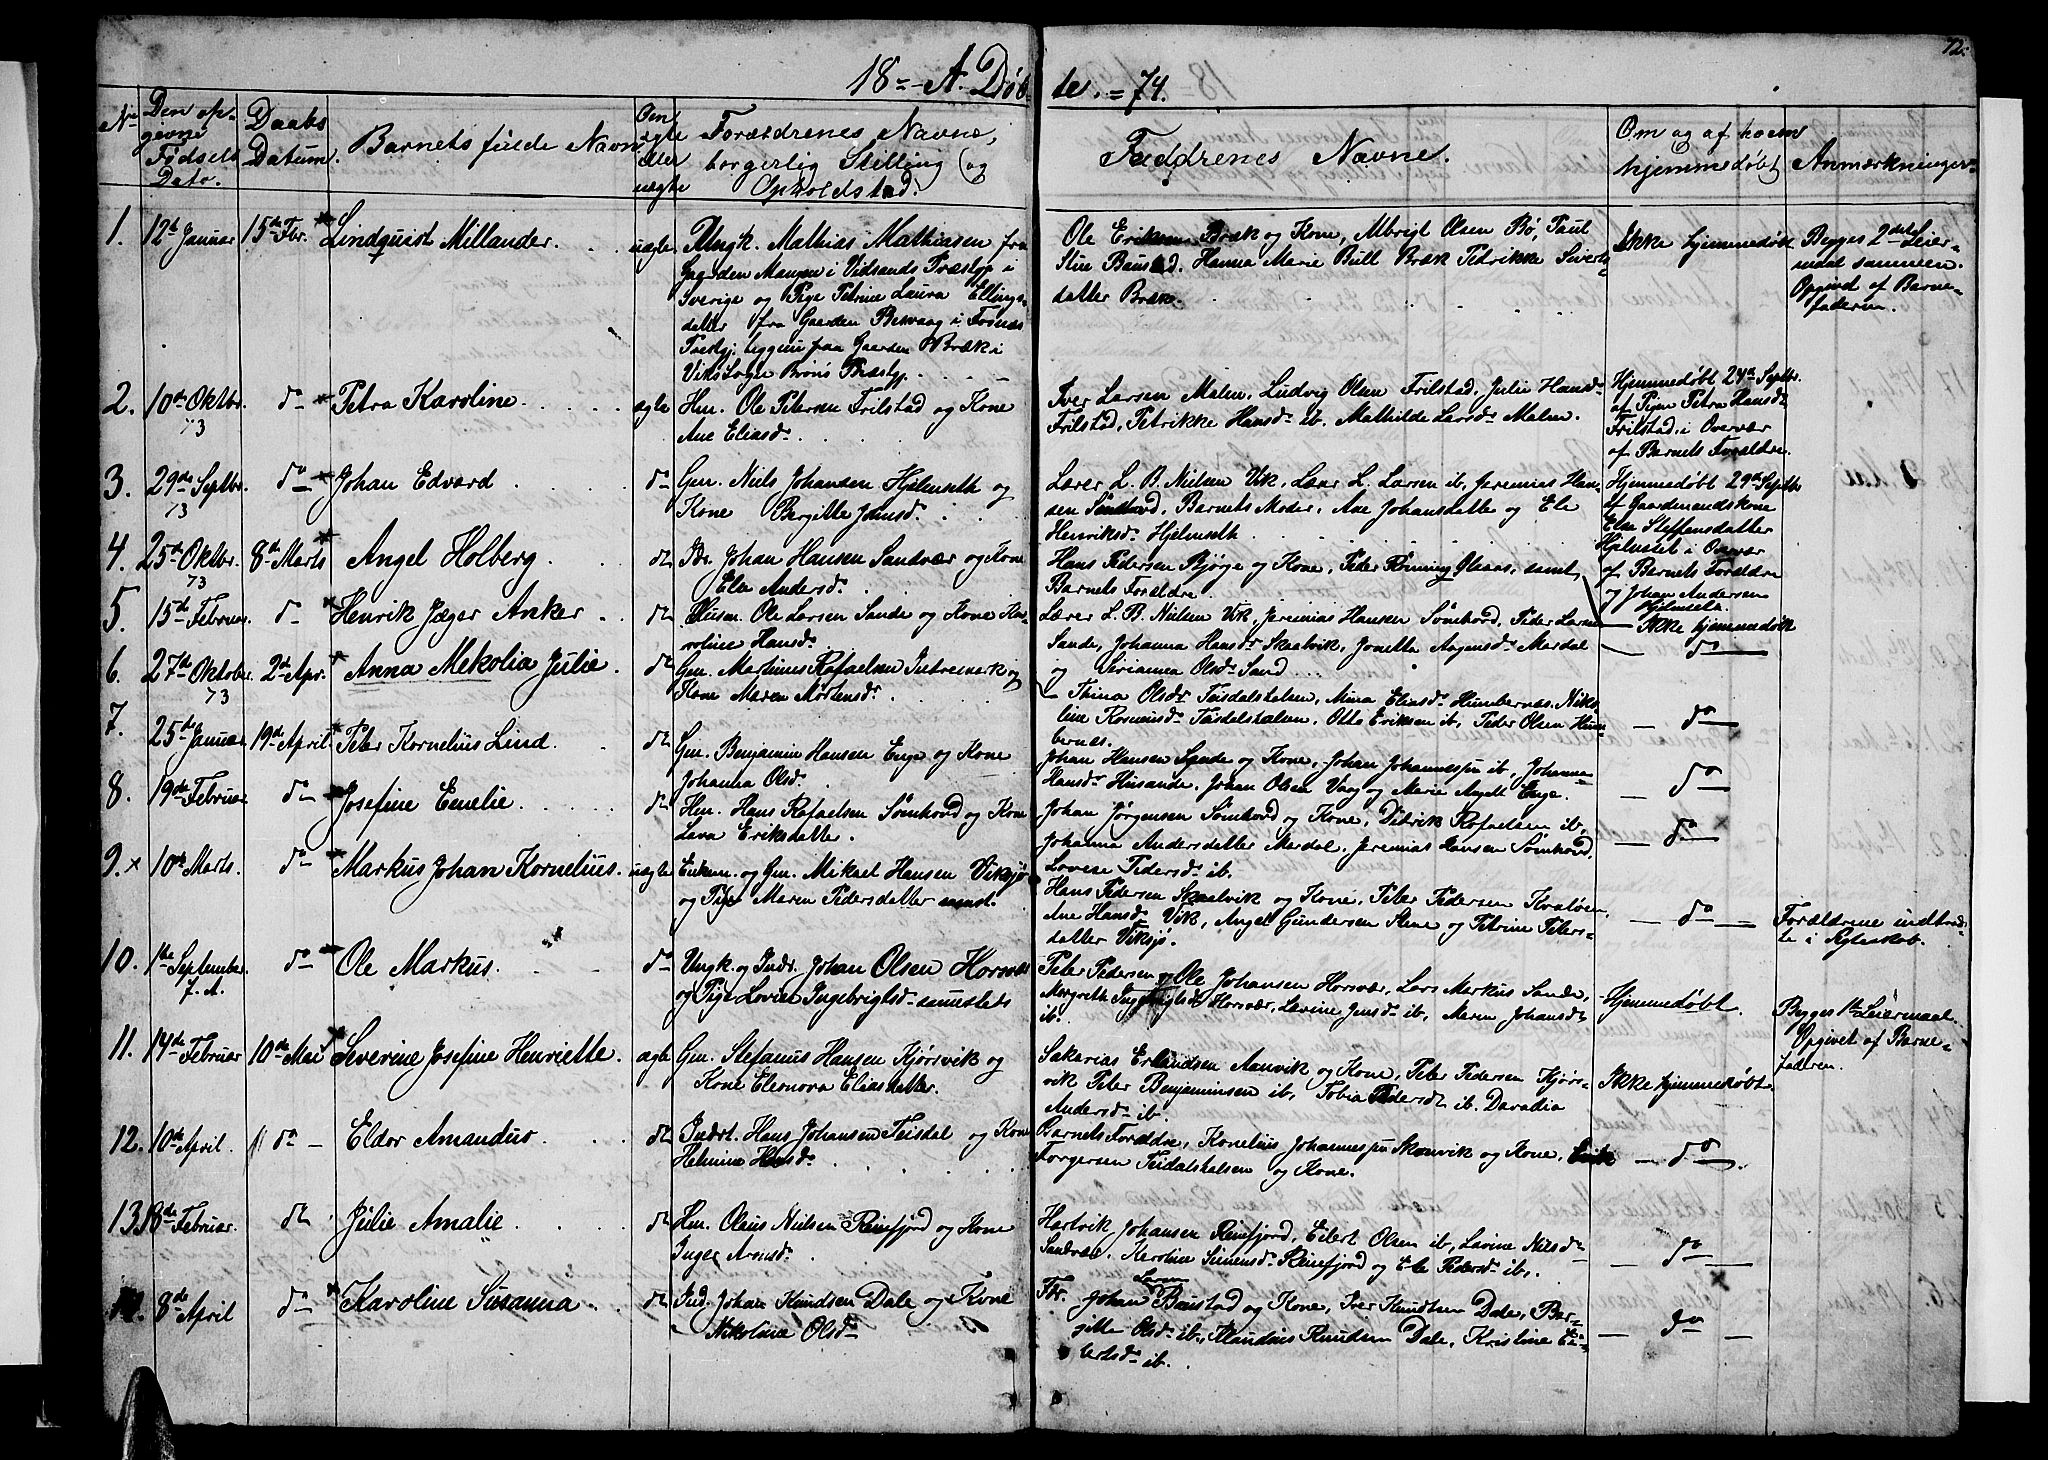 72.
18 - A. Døb
te. = 74.
No
Den op-
givne
Fødsels
Dato.
Daabs
Datum.
Barnets fulde Navn
Om
ægte
eller
uægte
Forældrenes Navne,
borgerlig Stilling og
Opholdstæd.
Faddrenes Navne.
Om og af hvem
hjemmedøbt
Anmærkninger
1. 12te Januar 15de Fbr. Lindquist Millander. uægte
Ungk. Mathias Mathiasen fra
Gaarden Mangen i Vidsands Præstgj. i
Sverige og Pige Petrine Laura Ellings-
datter fra Gaarden i Fosnæs
Præstgj. begge fra Gaarden Bræk i
Viks Sogn Brønø Præstgj.
Ole Eriksen Bræk og Kone, Albrigt Olsen Bø, Paul
Baustad. Hanna Marie Bræk Pedrikke Siverts-
datter Bræk.
Ikke hjemmedøbt
Begges 2det Leier-
maal sammen.
Opgivet af Barne-
faderen.
2. 10de Oktbr. 73 do Petra Karoline ægte
Hm. Ole Petersen Frilstad og Kone
Ane Eliasd.
Iver Larsen Malm, Ludvig Olsen Frilstad, Julie Hansd.
Frilstad, Petrikke Hansd. ib. Mathilde Larsd. Malm.
Hjemmedøbt 24de Septbr.
af Pigen Petra Hansd.
Frilstad, i Overvær
af Barnets Forældre.
3. 29de Septbr. 73 do Johan Edvard do
Gm. Niels Johansen Hjelmseth og
Kone Bergitte Jensd.
Lærer L. B. Nielsen Vik, Lærer L. Larsen ib, Jeremias Han-
sen Sømhovd, Barnets Moder, Ane Johansdatte og Ele
Henriksd. Hjelmseth
Hjemmedøbt 29de Septbr
af Gaardmandskone
Else Steffensdatter
Hjelmset i Overvær
af Barnets Forældre
og Johan Andersen
Hjelmseth.
4. 25de Oktbr. 73 8de Marts Angel Holberg. do
Johan Hansen Sandvær og Kone
Else Andersd.
Hans Pedersen Bjøge og Kone, Peter samt
Barnets Forældre
5. 15de Februar do Henrik Jæger Anker do
Husm. Ole Larsen Sande og Kone Ka-
roline Hansd.
Lærer L. B. Nielsen Vik, Jeremias Hansen Sømhovd, Peder Larsen
Sande, Johanna Hansd. Skaalvik, Jonetta Aagensd. Mardal
og Olsd. Sand
Ikke hjemmedøbt
6. 27de Oktober 73 2de Apr. Anna Mekolia Julie. do
Gm. Martinus Rafaelsen og
Kone Maren Mortensd.
Thina Olsd. Teisdalshalsen, Anna Eliasd. Humbernæs, Niko
line Teisdalshalsen, Otto Eriksen ib, Peder Olsen Hum-
bernæs.
do
7. 25de Januar 19de April Peter Kornelius Lind do
Gm. Benjamin Hansen Enge og Kone
Johanna Olsd.
Johan Hansen Sande og Kone, Johan Johannesen ib, Johanna
Hansd. Husande, Johan Olsen Vaag og Marie Angell Enge.
do
8. 19de Februar do Josefine Emelie do
Hm. Hans Rafaelsen Sømhovd og Kone
Lava Eriksdatter.
Johan Jørgensen Sømhovd og Kone, Didrik Rafaelsen ib,
Johanna Andersdatter Merdal, Jeremias Hansen Sømhovd,
Lovise Pedersd. ib.
do
9. x 10de Marts. do Markus Johan Kornelius. uægte
Enkem. og Gm. Mikael Hansen Viksjø
og Pige Maren Pedersdatter samst.
Hans Pedersen Skaalvik og Kone, Peter Pedersen Kvaløen,
Ane Hansd. Vik, Angel Gundersen Stene og Petrine Peters-
datter Viksjø.
do
Forældrene indtræd-
te i Egteskab.
10. 1ste September f. A. do Ole Markus. do
Ungk. og Indr. Johan Olsen Horsvær
og Pige Lovise Ingebrigtsd. samstets
Peter Pedersen og Ole Johansen Horsvær, Lars Markus Sande,
Margrethe Horsvær, Lavine Jensd. ib, Maren Johansd.
ib.
Hjemmedøbt.
Begges 1ste Leiermaal.
Opgivet af Barne-
faderen.
11. 14de Februar 10de Mai Severine Josefine Henriette. ægte
Gm. Stefanus Hansen Kjørsvik og
Kone Eleonora Eliasdatter.
Sakarias Erlandsen Aanvik og Kone, Peter Pedersen Kjørs-
vik Peter Benjaminsen ib, Tobia Pedersd. ib. Daradia
Andersd. ib.
Ikke hjemmedøbt
12. 10de April. do Eldor Amandus do
Indrt. Hans Johansen Teisdal og Kone
Helmine Hansd.
Barnets Forældre, Kornelius Johannesen Skomvik og Kone,
Torgersen Teidalshalsen og Kone.
do
13. 18de Februar. do Julie Amalie. do
Hm. Olaus Nielsen Reinfjord og Kone
Inger Arnsd.
Hartvik Johansen Reinfjord, Eilert Olsen ib, Lavine Nilsd.
Sandvær, Karoline Simensd. Reinfjord og Ele Pedersd. ib.
do
14. 8de April do Karoline Susanna do
Ind. Johan Knudsen Dale og Kone
Nikoline Olsd.
Fbr. Johan Larsen Baustad og Kone, Iver Knudsen Dale, Ber-
gitte Olsd. ib, Klaudius Knudsen Dale, Kristine Ei-
lertsd. ib.
do